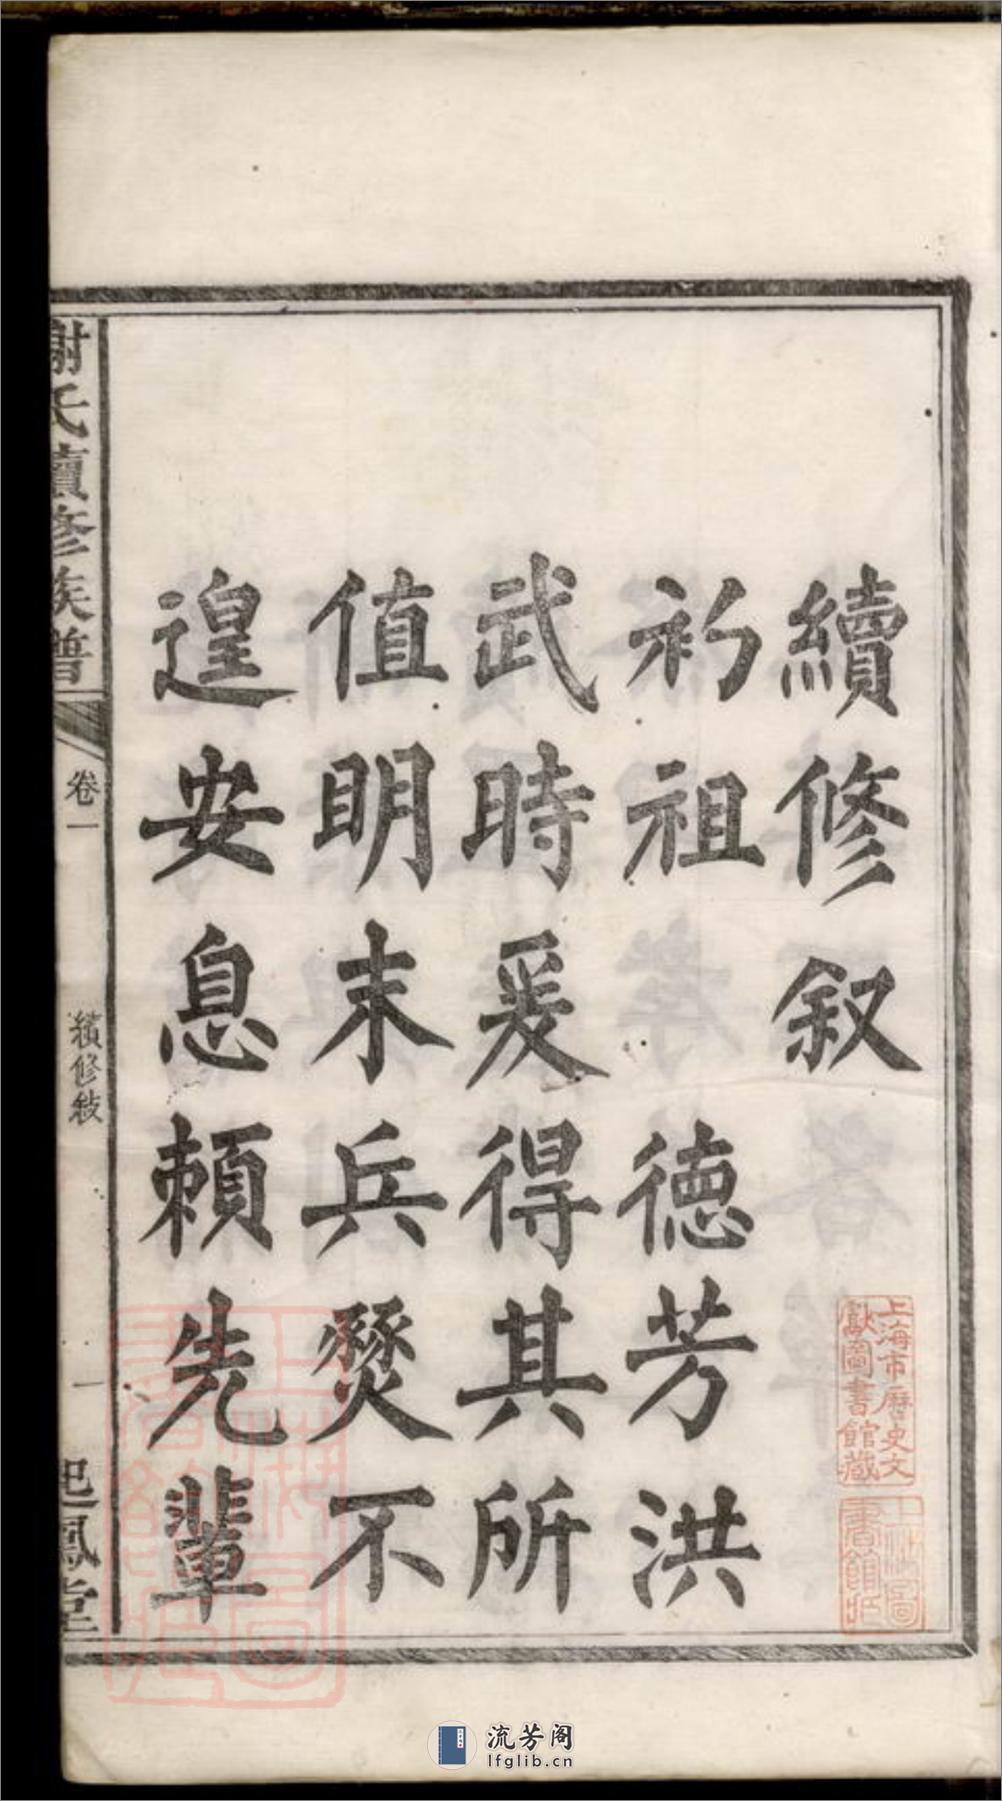 續修叙
礽祖 德芳洪
武時爰得其所
值明末兵燹不
遑安息賴先輩
謝氏續修族譜
卷一
續修敍
一
起鳳堂
上海市歷史文
獻圖書館藏
上海圖
書館藏
流芳阁
lfglib.cn